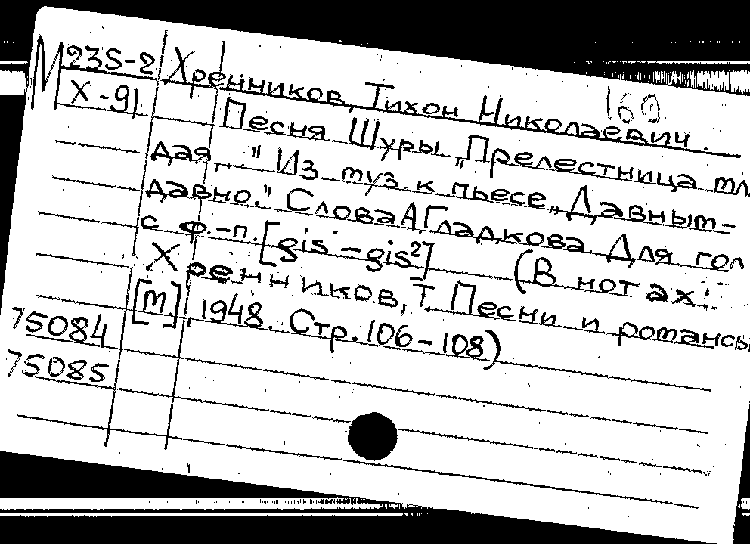 М 235-2 Хренников, Тихон Николаевич.
160
Х-91 Песня Шуры „Прелестница мла
дая..." Из муз. к пьесе „Давным-
давно." Слова А. Гладкова. Для гол.
с ф.-п. [gis'-gis²] (В нотах:
Хренников, Т. Песни и романсы
[М], 1948. Стр. 106-108)
75084
75085